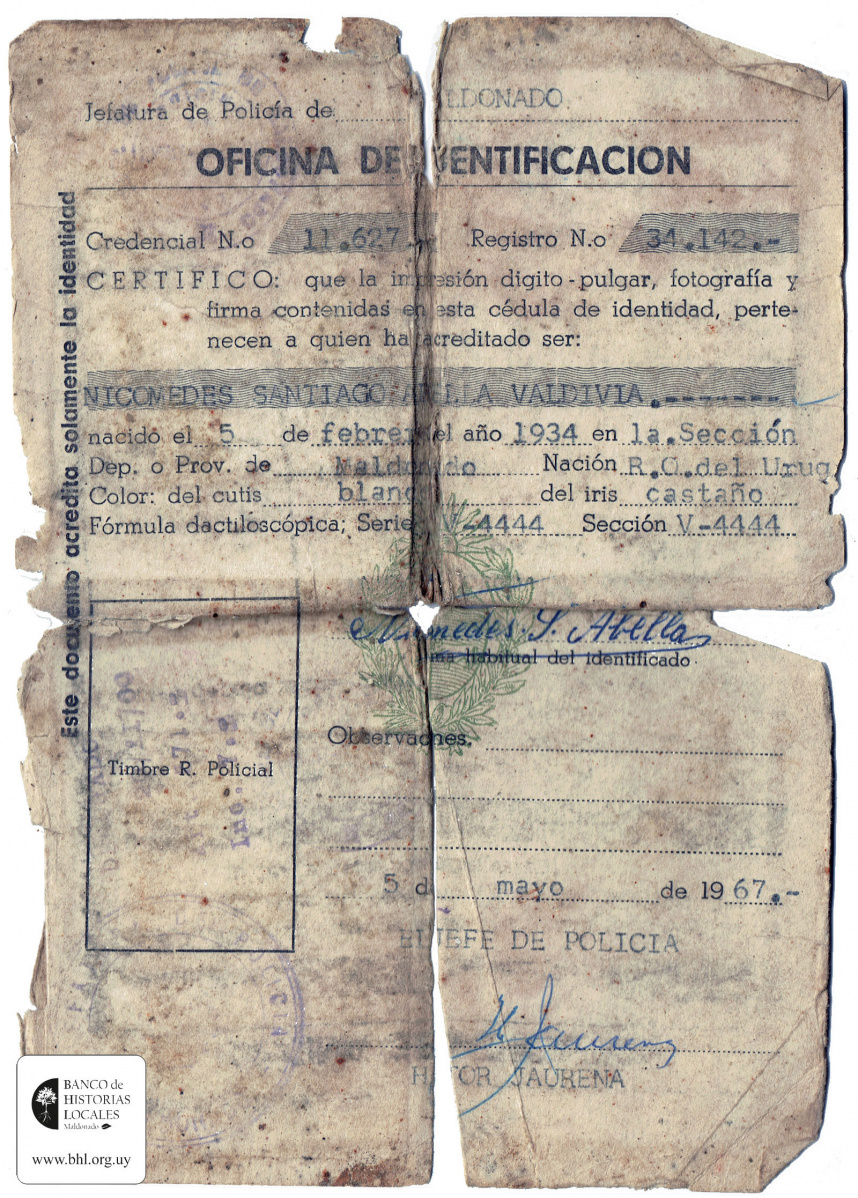 Jefatura de Policía de LDONADO
OFICINA DE IDENTIFICACION
Credencial N.o 11.627.- Registro N.o 34.142.-
CERTIFICO: que la impresión digito-pulgar, fotografía y
firma contenidas en esta cédula de identidad, perte-
necen a quien ha acreditado ser:
NICOMEDES SANTIAGO ABELLA VALDIVIA.-------
nacido el 5 de febrer el año 1934 en la.Sección
Dep. o Prov. de Maldonado Nación R.O.del Urug
Color: del cutis blanc del iris castaño
Fórmula dactiloscópica; Serie V-4444 Sección V-4444
Este documento acredita solamente la identidad
Nicomedes S. Abella
ma habitual del identificado
Timbre R. Policial
Observaciones.
5 de mayo de 1967.-
EL JEFE DE POLICIA
H. Jaurena
H TOR JAURENA
BANCO de
HISTORIAS
LOCALES
Maldonado
www.bhl.org.uy